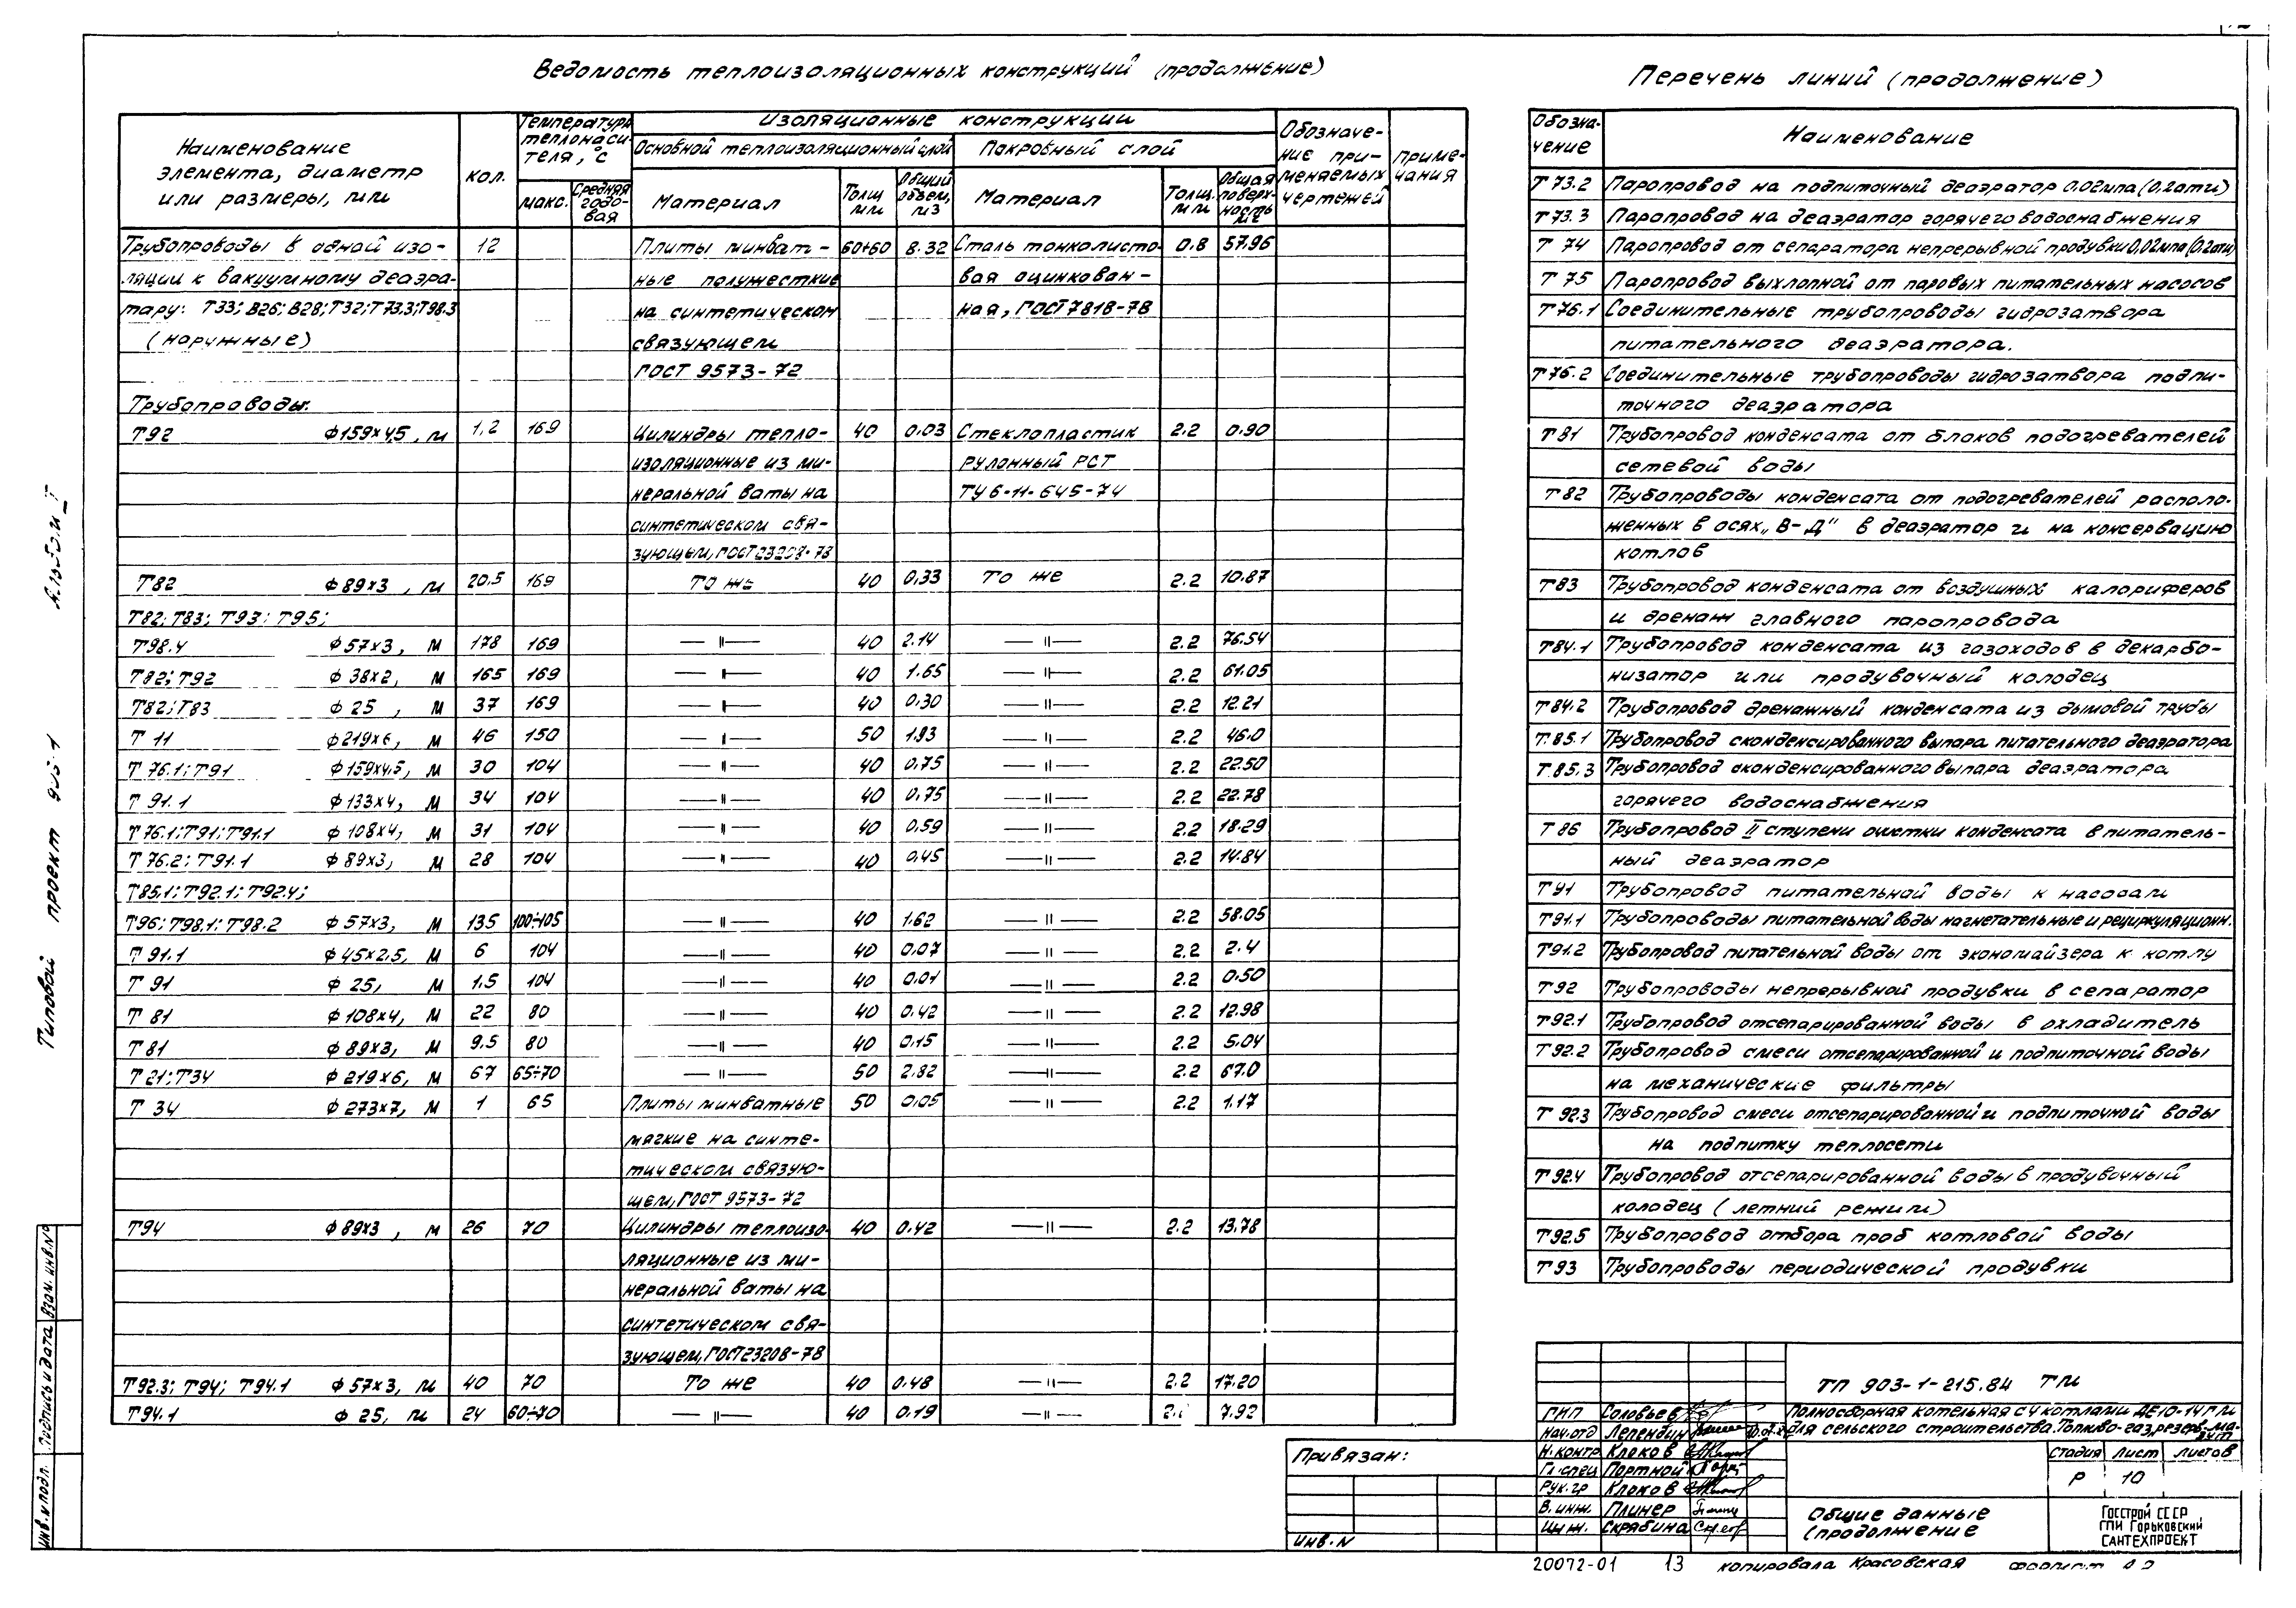 Ведомость теплоизоляционных конструкций (продолжение)
Наименование элемента, диаметр или размеры, мм | кол. | Температура теплоносителя, °С | Изоляционные конструкции | Обозначение применяемых чертежей | Примечания
Основной теплоизоляционный слой | Покровный слой
макс. | Средняя годовая | Материал | Толщ. мм | Общий объем, м3 | Материал | Толщ. мм | Общая поверхность м2
Трубопроводы в одной изо- 12 Плиты минват- 60+60 8.32 Сталь тонколисто- 0.8 57.96
ляции к вакуумному деаэра- ные полужесткие вая оцинкован-
тору: Т33; В26; В28; Т32; Т73.3; Т98.3 на синтетическом ная, ГОСТ 7818-78
(наружные) связующем
ГОСТ 9573-72
Трубопроводы:
Т92 ф159х4,5, м 1,2 169 Цилиндры тепло- 40 0.03 Стеклопластик 2.2 0.90
изоляционные из ми- рулонный РСТ
неральной ваты на ТУ6-11-645-74
синтетическом свя-
зующем, ГОСТ 23208-78
Т82 ф89х3, м 20.5 169 То же 40 0.33 То же 2.2 10.87
Т82; Т83; Т93; Т95;
Т98.4 ф57х3, м 178 169 —"— 40 2.14 —"— 2.2 76.54
Т82; Т92 ф38х2, м 165 169 —"— 40 1.65 —"— 2.2 61.05
Т82; Т83 ф25, м 37 169 —"— 40 0.30 —"— 2.2 12.21
Т11 ф219х6, м 46 150 —"— 50 1.93 —"— 2.2 46.0
Т76.1; Т91 ф159х4.5, м 30 104 —"— 40 0.75 —"— 2.2 22.50
Т91.1 ф133х4, м 34 104 —"— 40 0.75 —"— 2.2 22.78
Т76.1; Т91; Т91.1 ф108х4, м 31 104 —"— 40 0.59 —"— 2.2 18.29
Т76.2; Т91.1 ф89х3, м 28 104 —"— 40 0.45 —"— 2.2 14.84
Т85.1; Т92.1; Т92.4;
Т96; Т98.1; Т98.2 ф57х3, м 135 100÷105 —"— 40 1.62 —"— 2.2 58.05
Т91.1 ф45х2.5, м 6 104 —"— 40 0.07 —"— 2.2 2.4
Т91 ф25, м 1.5 104 —"— 40 0.01 —"— 2.2 0.50
Т81 ф108х4, м 22 80 —"— 40 0.42 —"— 2.2 12.98
Т81 ф89х3, м 9.5 80 —"— 40 0.15 —"— 2.2 5.04
Т21; Т34 ф219х6, м 67 65÷70 —"— 50 2.82 —"— 2.2 67.0
Т34 ф273х7, м 1 65 Плиты минватные 50 0.05 —"— 2.2 1.17
мягкие на синте-
тическом связую-
щем, ГОСТ 9573-72
Т94 ф89х3, м 26 70 Цилиндры теплоизо- 40 0.42 —"— 2.2 13.78
ляционные из ми-
неральной ваты на
синтетическом свя-
зующем, ГОСТ 23208-78
Т92.3; Т94; Т94.1 ф57х3, м 40 70 То же 40 0.48 —"— 2.2 17.20
Т94.1 ф25, м 24 60÷70 —"— 40 0.19 —"— 7.92
Перечень линий (продолжение)
Обозначение | Наименование
Т73.2 Паропровод на подпиточный деаэратор 0.02мпа (0.2ати)
Т73.3 Паропровод на деаэратор горячего водоснабжения
Т74 Паропровод от сепаратора непрерывной продувки 0,02мпа (0.2ати)
Т75 Паропровод выхлопной от паровых питательных насосов
Т76.1 Соединительные трубопроводы гидрозатвора
питательного деаэратора.
Т76.2 Соединительные трубопроводы гидрозатвора подпи-
точного деаэратора
Т81 Трубопровод конденсата от блоков подогревателей
сетевой воды
Т82 Трубопроводы конденсата от подогревателей располо-
женных в осях „В-Д" в деаэратор и на консервацию
котлов
Т83 Трубопровод конденсата от воздушных калориферов
и дренаж главного паропровода
Т84.1 Трубопровод конденсата из газоходов в декарбо-
низатор или продувочный колодец
Т84.2 Трубопровод дренажный конденсата из дымовой трубы
Т85.1 Трубопровод сконденсированного выпара питательного деаэратора
Т85.3 Трубопровод сконденсированного выпара деаэратора
горячего водоснабжения
Т86 Трубопровод II ступени очистки конденсата в питатель-
ный деаэратор
Т91 Трубопровод питательной воды к насосам
Т91.1 Трубопроводы питательной воды нагнетательные и рециркуляционн.
Т91.2 Трубопровод питательной воды от экономайзера к котлу
Т92 Трубопроводы непрерывной продувки в сепаратор
Т92.1 Трубопровод отсепарированной воды в охладитель
Т92.2 Трубопровод смеси отсепарированной и подпиточной воды
на механические фильтры
Т92.3 Трубопровод смеси отсепарированной и подпиточной воды
на подпитку теплосети
Т92.4 Трубопровод отсепарированной воды в продувочный
колодец (летний режим)
Т92.5 Трубопровод отбора проб котловой воды
Т93 Трубопроводы периодической продувки
Типовой проект 903-1
Альбом I
Инв. N подл. Подпись и дата Взам. инв. N
Привязан:
Инв. N
ТП 903-1-215.84 ТМ
ГИП Соловьев
Нач. отд Лепендин
Н. контр Клоков
Гл. спец Портной
Рук. гр Клоков
В. инж. Плинер
Инж. Скрябина
Полносборная котельная с 4 котлами ДЕ10-14ГМ
для сельского строительства. Топливо-газ, резерв-ма-
зут
Стадия Лист Листов
Р 10
Общие данные
(продолжение
Госстрой СССР
ГПИ Горьковский
Сантехпроект
20072-01 13 копировала Красовская